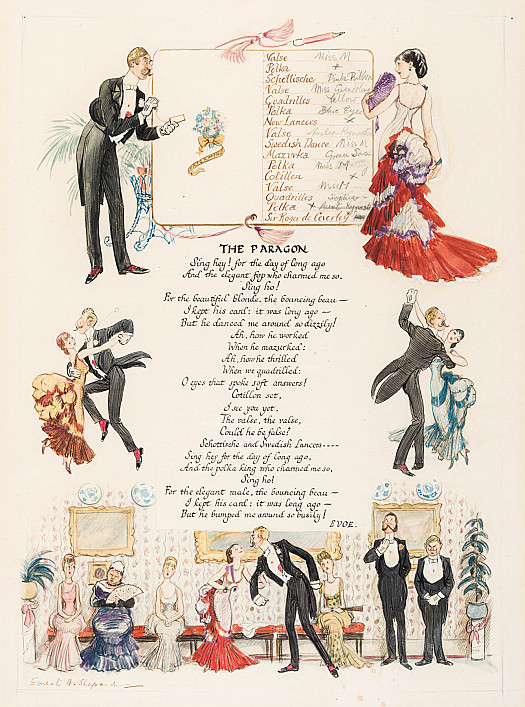 Valse Miss M
Polka +
Schottische Pink Ribbon
Valse Miss Gwendoline
Quadrilles Yellow
Polka Blue Eyes
New Lancers +
Valse
Swedish Dance Miss M
Mazurka Green Sash
Polka Miss
Cotillon +
Valse Miss M
Quadrilles Sophie
Polka +
Sir Roger de Coverley
THE PARAGON
Sing hey! for the day of long ago
And the elegant fop who charmed me so,
Sing ho!
For the beautiful blonde, the bouncing beau —
I kept his card: it was long ago —
But he danced me around so dizzily!
Ah, how he worked
When he mazurked:
Ah, how he thrilled
When we quadrilled:
O eyes that spoke soft answers!
Cotillon set,
I see you yet,
The valse, the valse,
Could he be false?
Schottische and Swedish Lancers ----
Sing hey for the day of long ago,
And the polka king who charmed me so,
Sing ho!
For the elegant male, the bouncing beau —
I kept his card: it was long ago —
But he bumped me around so busily!
EVOE.
Ernest H. Shepard